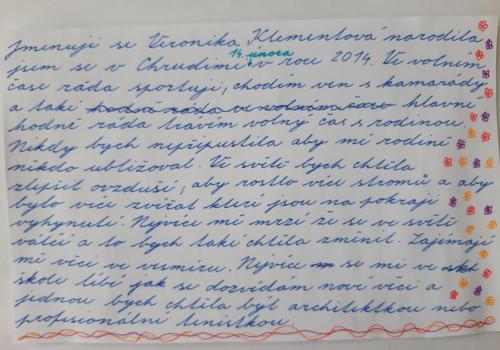 Jmenuji se Veronika Klementová narodila
jsem se v Chrudimi 14. února v roce 2014. Ve volném
čase ráda sportuji, chodím ven s kamarády
a také hodně ráda ve volném čase hlavně
hodně ráda trávím volný čas s rodinou.
Nikdy bych nepřipustila aby mé rodině
někdo ubližoval. Ve světě bych chtěla
zlepšit ovzduší, aby rostlo více stromů a aby
bylo více zvířat které jsou na pokraji
vyhynutí. Nejvíce mě mrzí že se ve světě
válčí a to bych také chtěla změnit. Zajímají
mě věci ve vesmíru. Nejvíce se mi ve
škole líbí jak se dozvídám nové věci a
jednou bych chtěla být architektkou nebo
profesionální tenistkou.